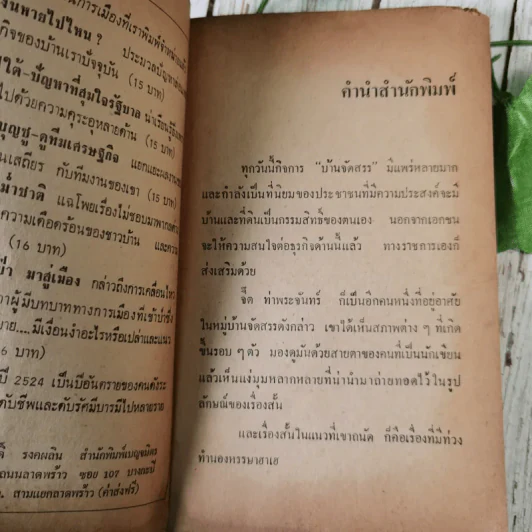 นการเมืองที่เราพิมพ์จำหน่ายแล้ว
งินหายไปไหน ? ประมวลปัญหา
กิจของบ้านเราปัจจุบัน (15 บาท)
ใต้-ปัญหาที่สุมใจรัฐบาล น่าเรียนรู้
ไปด้วยความคุระอุหลายด้าน (15 บาท)
บุญชู-ดูทีมเศรษฐกิจ แยกแยะผลงาน
นเสถียร กับทีมงานของเขา (15 บาท)
ม่ำชาติ แฉโพยเรื่องไม่ชอบมาพากล
ความเดือดร้อนของชาวบ้าน และความ
(16 บาท)
ป่า มาสู่เมือง กล่าวถึงการเคลื่อนไหว
าผู้มีบทบาททางการเมืองที่เข้าป่าซึ่ง
บาย....มีเงื่อนงำอะไรหรือเปล่าและแนว
6 บาท)
ปี 2524 เป็นปีอันตรายของคนดังระ
ดับชีพและดับรัศมีบารมีไปหลายราย
ดิ์ รงคผลิน สำนักพิมพ์เบญจมิตร
ถนนลาดพร้าว ซอย 107 บางกะปิ
. สามแยกลาดพร้าว (ค่าส่งฟรี)
คำนำสำนักพิมพ์
ทุกวันนี้กิจการ "บ้านจัดสรร" มีแพร่หลายมาก
และกำลังเป็นที่นิยมของประชาชนที่มีความประสงค์จะมี
บ้านและที่ดินเป็นกรรมสิทธิ์ของตนเอง นอกจากเอกชน
จะให้ความสนใจต่อธุรกิจด้านนี้แล้ว ทางราชการเองก็
ส่งเสริมด้วย
จี๊ด ท่าพระจันทร์ ก็เป็นอีกคนหนึ่งที่อยู่อาศัย
ในหมู่บ้านจัดสรรดังกล่าว เขาได้เห็นสภาพต่าง ๆ ที่เกิด
ขึ้นรอบ ๆ ตัว มองดูมันด้วยสายตาของคนที่เป็นนักเขียน
แล้วเห็นแง่มุมหลากหลายที่น่านำมาถ่ายทอดไว้ในรูป
ลักษณ์ของเรื่องสั้น
และเรื่องสั้นในแนวที่เขาถนัด ก็คือเรื่องที่มีท่วง
ทำนองหรรษาฮาเฮ